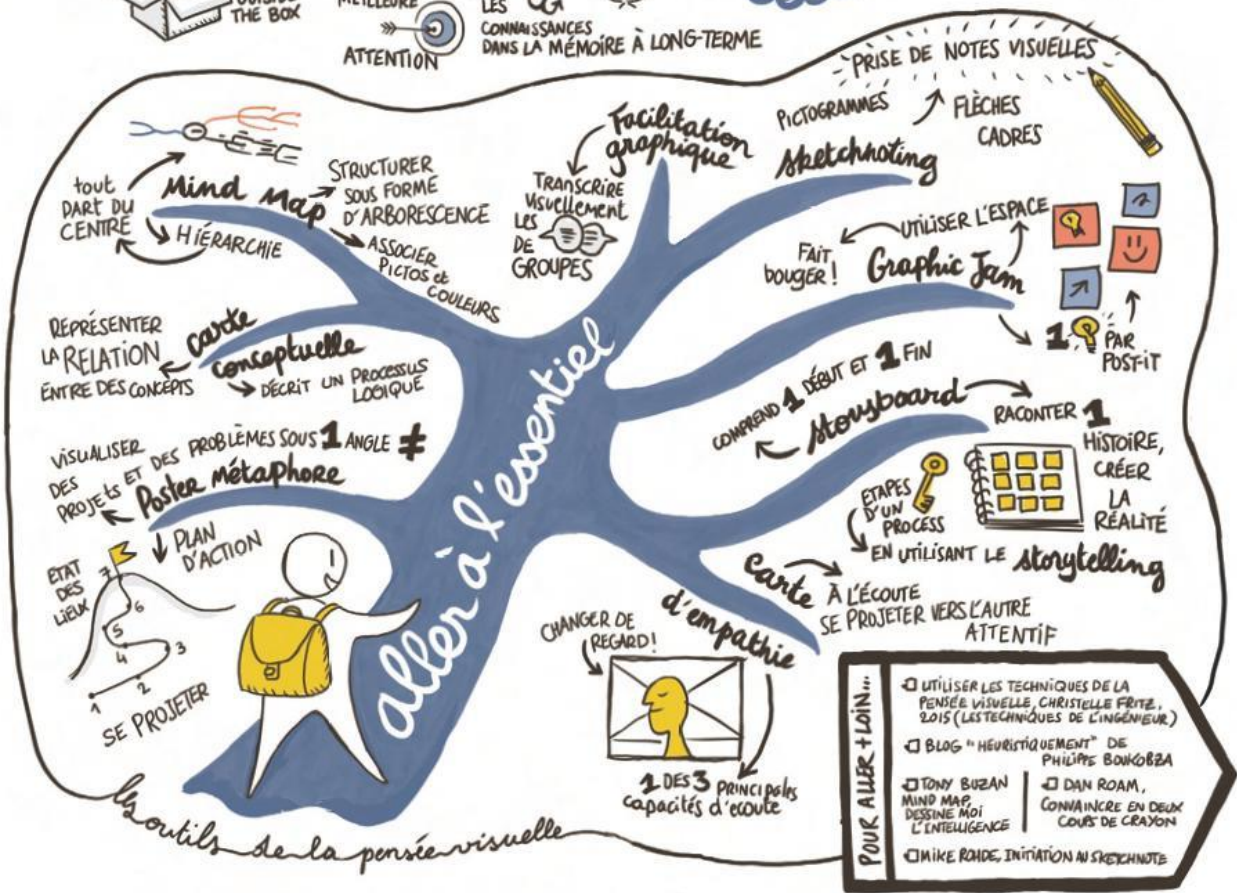 OUTSIDE
THE BOX
MEILLEURE
ATTENTION
LES
CONNAISSANCES
DANS LA MÉMOIRE À LONG-TERME
PRISE DE NOTES VISUELLES
PICTOGRAMMES
FLÈCHES
CADRES
sketchnoting
Facilitation
graphique
TRANSCRIRE
VISUELLEMENT
LES
DE
GROUPES
Mind Map
tout
PART DU
CENTRE
HIÉRARCHIE
STRUCTURER
SOUS FORME
D'ARBORESCENCE
ASSOCIER
PICTOS et
COULEURS
UTILISER L'ESPACE
FAIT
bouger!
Graphic Jam
1
PAR
POST-IT
REPRÉSENTER
LA RELATION
ENTRE DES CONCEPTS
carte
conceptuelle
DÉCRIT UN PROCESSUS
LOGIQUE
COMPREND 1 DÉBUT ET 1 FIN
storyboard
RACONTER 1
HISTOIRE,
CRÉER
LA
RÉALITÉ
ETAPES
D'UN
PROCESS
EN UTILISANT LE storytelling
VISUALISER
DES
PROJETS ET DES PROBLÈMES SOUS 1 ANGLE ≠
Poster métaphore
PLAN
D'ACTION
ETAT
DES
LIEUX
7
6
5
4
3
2
1
SE PROJETER
aller à l'essentiel
carte
d'empathie
À L'ÉCOUTE
SE PROJETER VERS L'AUTRE
ATTENTIF
CHANGER DE
REGARD!
1 DES 3 PRINCIPALES
capacités d'ecoute
les outils de la pensée visuelle
POUR ALLER + LOIN...
UTILISER LES TECHNIQUES DE LA
PENSÉE VISUELLE, CHRISTELLE FRITZ,
2015 (LES TECHNIQUES DE L'INGÉNIEUR)
BLOG "HEURISTIQUEMENT" DE
PHILIPPE BOUKOBZA
TONY BUZAN
MIND MAP,
DESSINE MOI
L'INTELLIGENCE
DAN ROAM,
CONVAINCRE EN DEUX
COUPS DE CRAYON
MIKE ROHDE, INITIATION AU SKETCHNOTE